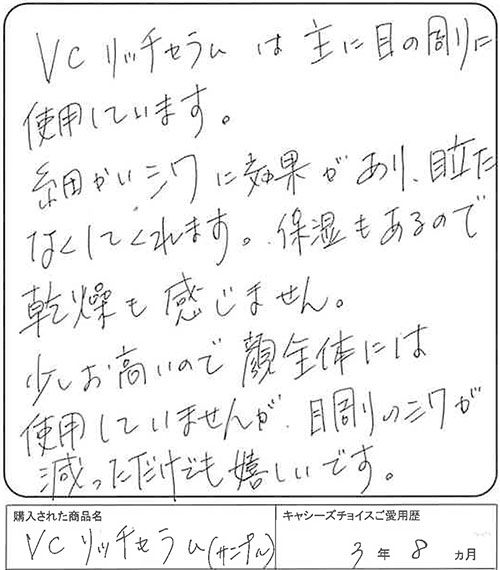 VCリッチセラムは主に目の周りに
使用しています。
細かいシワに効果があり、目立た
なくしてくれます。保湿もあるので
乾燥も感じません。
少しお高いので顔全体には
使用していませんが、目周りのシワが
減っただけでも嬉しいです。
購入された商品名
キャシーズチョイスご愛用歴
VCリッチセラム(サンプル)
3年8ヵ月